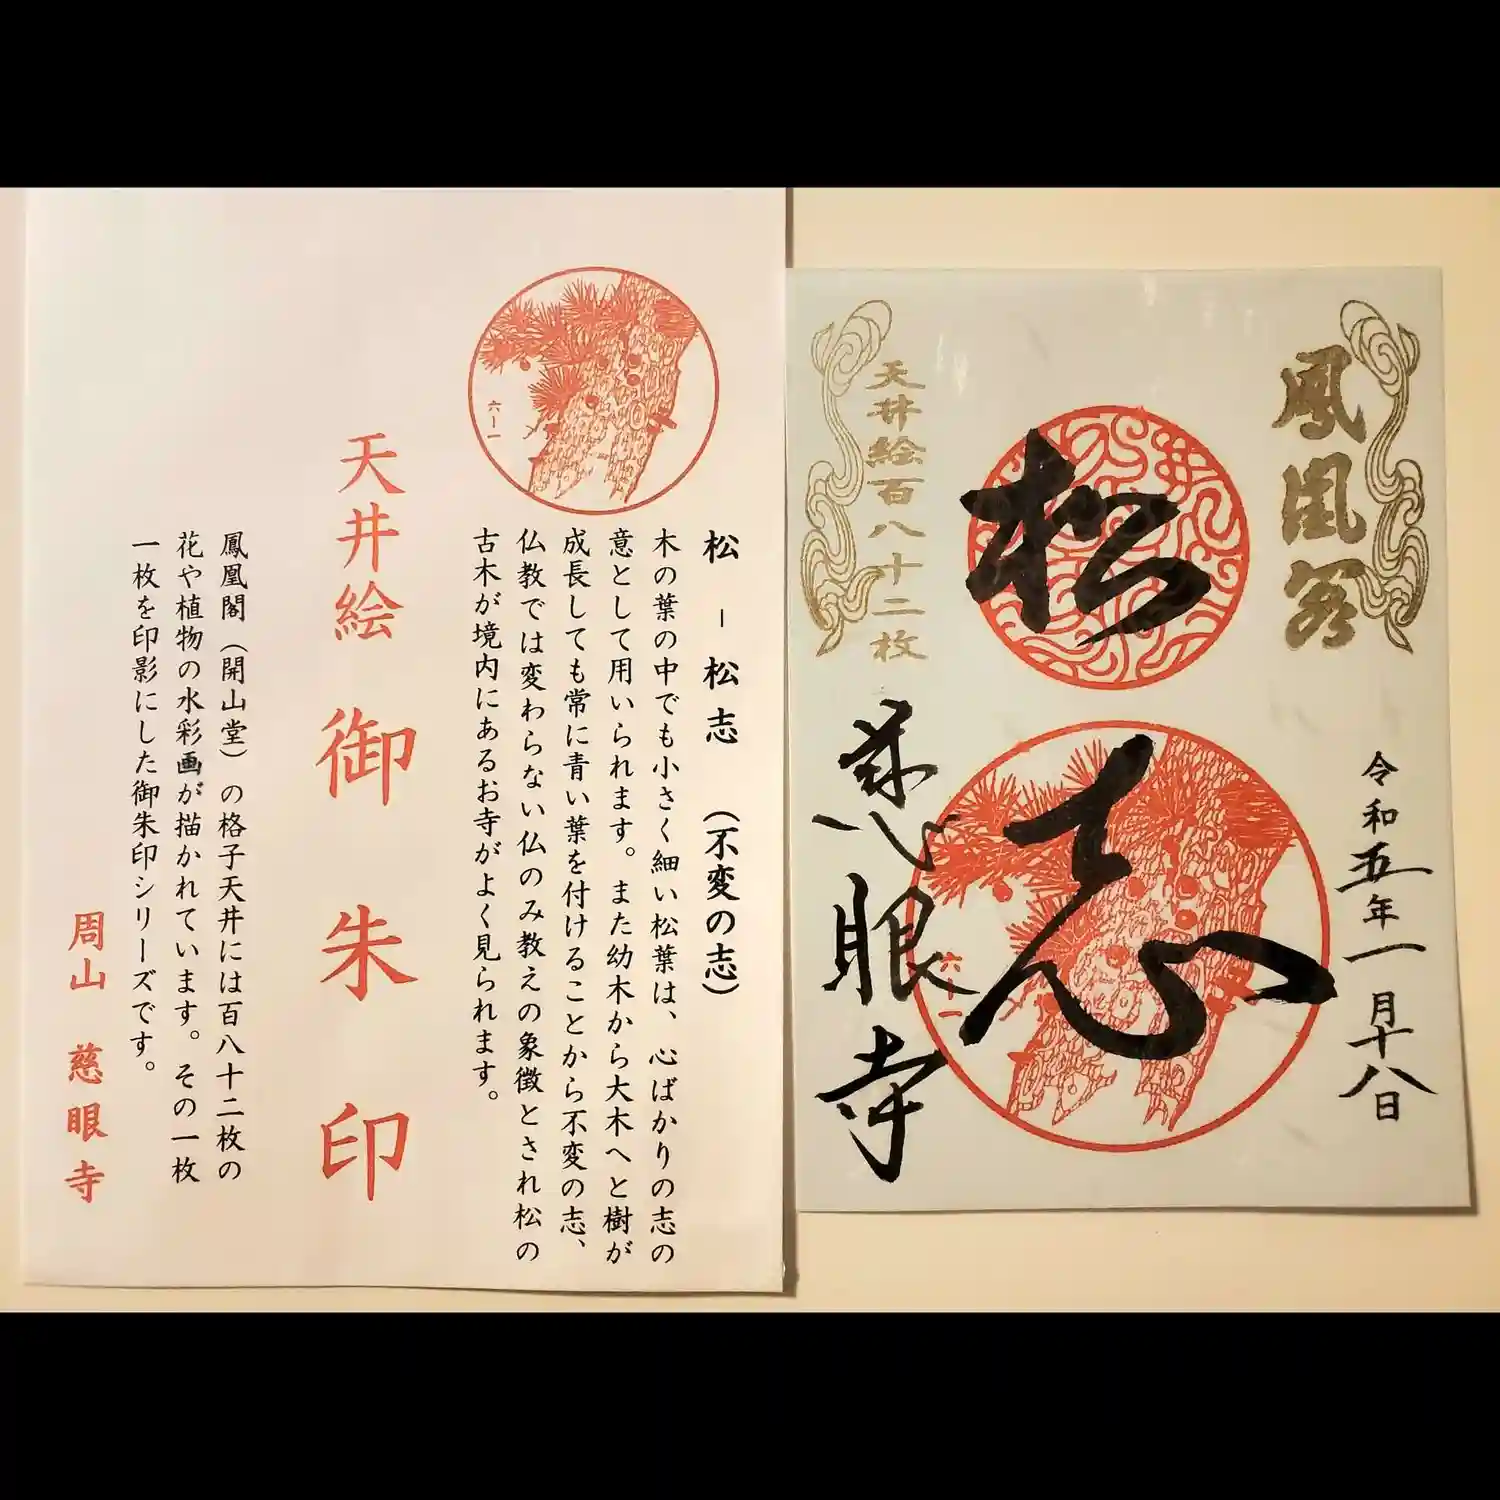 六-一
松 - 松志 (不変の志)
木の葉の中でも小さく細い松葉は、心ばかりの志の
意として用いられます。また幼木から大木へと樹が
成長しても常に青い葉を付けることから不変の志、
仏教では変わらない仏のみ教えの象徴とされ松の
古木が境内にあるお寺がよく見られます。
天井絵 御朱印
鳳凰閣(開山堂)の格子天井には百八十二枚の
花や植物の水彩画が描かれています。その一枚
一枚を印影にした御朱印シリーズです。
周山 慈眼寺
鳳凰閣
令和五年一月十八日
松
志
六-一
天井絵百八十二枚
慈眼寺